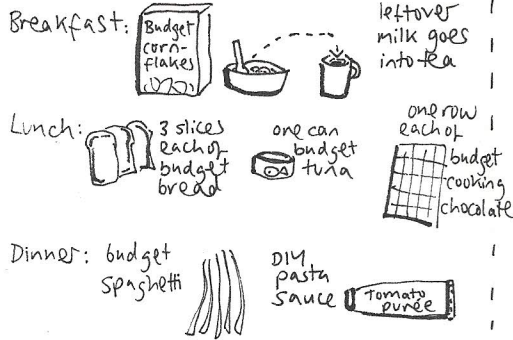 Breakfast:
Budget
corn-
flakes
leftover
milk goes
into tea
Lunch:
3 slices
each of
budget
bread
one can
budget
tuna
one row
each of
budget
cooking
chocolate
Dinner:
budget
spaghetti
DIY
pasta
sauce
Tomato
purée